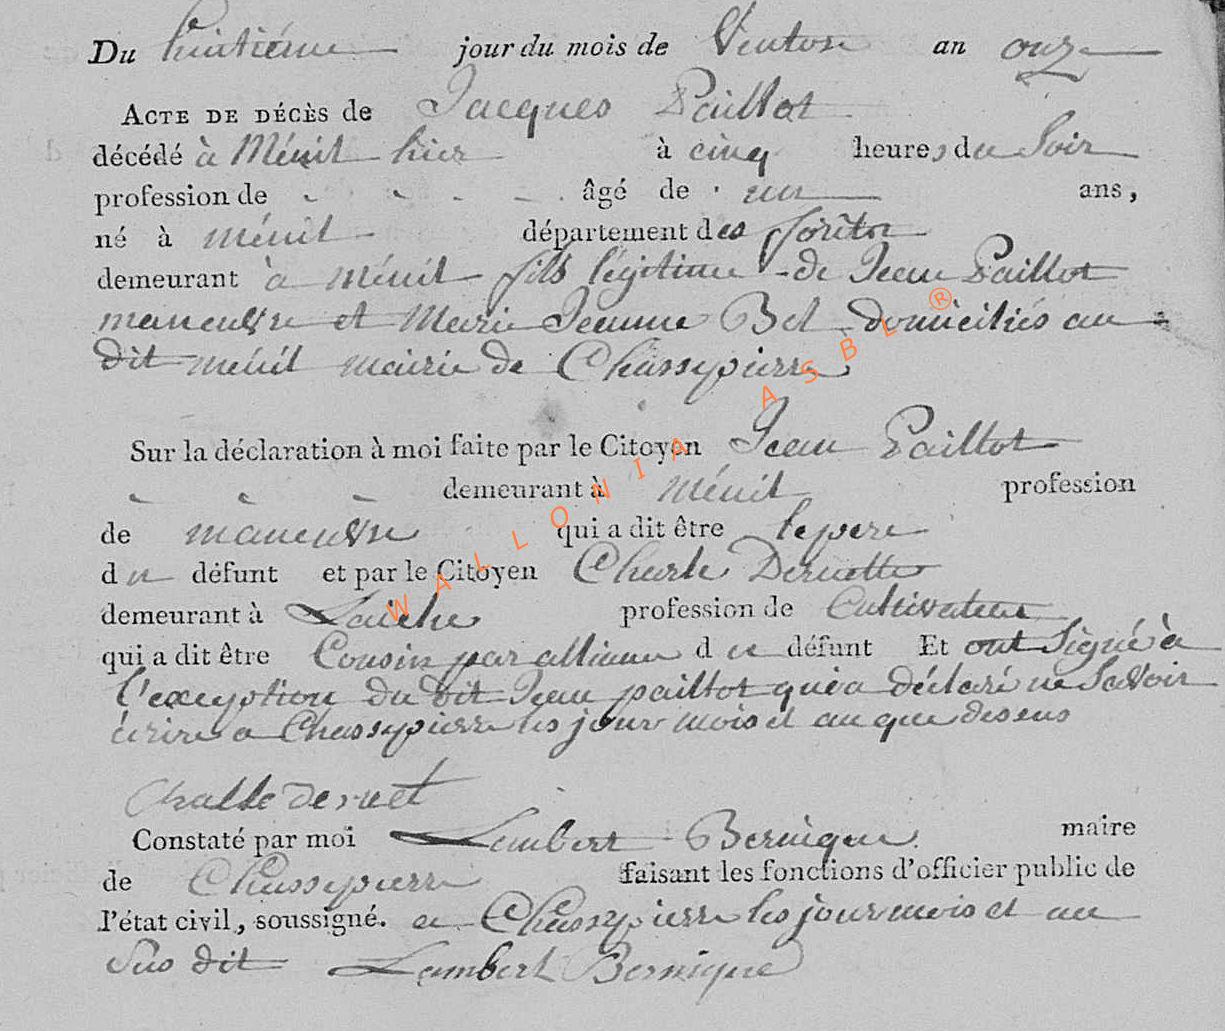 Du huitième jour du mois de Ventose an onze
ACTE DE DÉCÈS de Jacques Paillot
décédé à Ménil hier à cinq heures du Soir
profession de - - - - âgé de un ans,
né à ménil département des forêts
demeurant à ménil fils légitime de Jean Paillot
maneuvre et Marie Jeanne Bel domiciliés au
dit ménil mairie de Chassypierre
Sur la déclaration à moi faite par le Citoyen Jean Paillot
- - - demeurant à ménil profession
de maneuvre qui a dit être le pere
du défunt et par le Citoyen Charle Deruette
demeurant à Laiche profession de Cultivateur
qui a dit être Cousin par alliance du défunt Et ont Signé à
l'exception du dit Jean paillot qui a déclaré ne Savoir
écrire a Chassypierre les jour mois et an que dessus
Challe deruet
Constaté par moi Lambert Bernique maire
de Chassypierre faisant les fonctions d'officier public de
l'état civil, soussigné. a Chassypierre les jour mois et an
Sus dit Lambert Bernique
WALLONIA ASBL ®